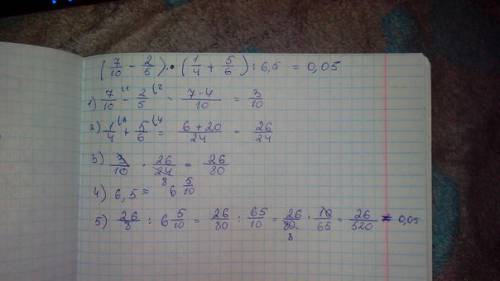 (7/10 - 2/5) • (1/4 + 5/6) : 6,5 = 0,05
1) 7/10 - 2/5 = 7-4/10 = 3/10
2) 1/4 + 5/6 = 6+20/24 = 26/24
3) 3/10 · 26/24 8 = 26/80
4) 6,5 = 6 5/10
5) 26/8 : 6 5/10 = 26/80 : 65/10 = 26/80 8 · 10/65 = 26/520 = 0,05